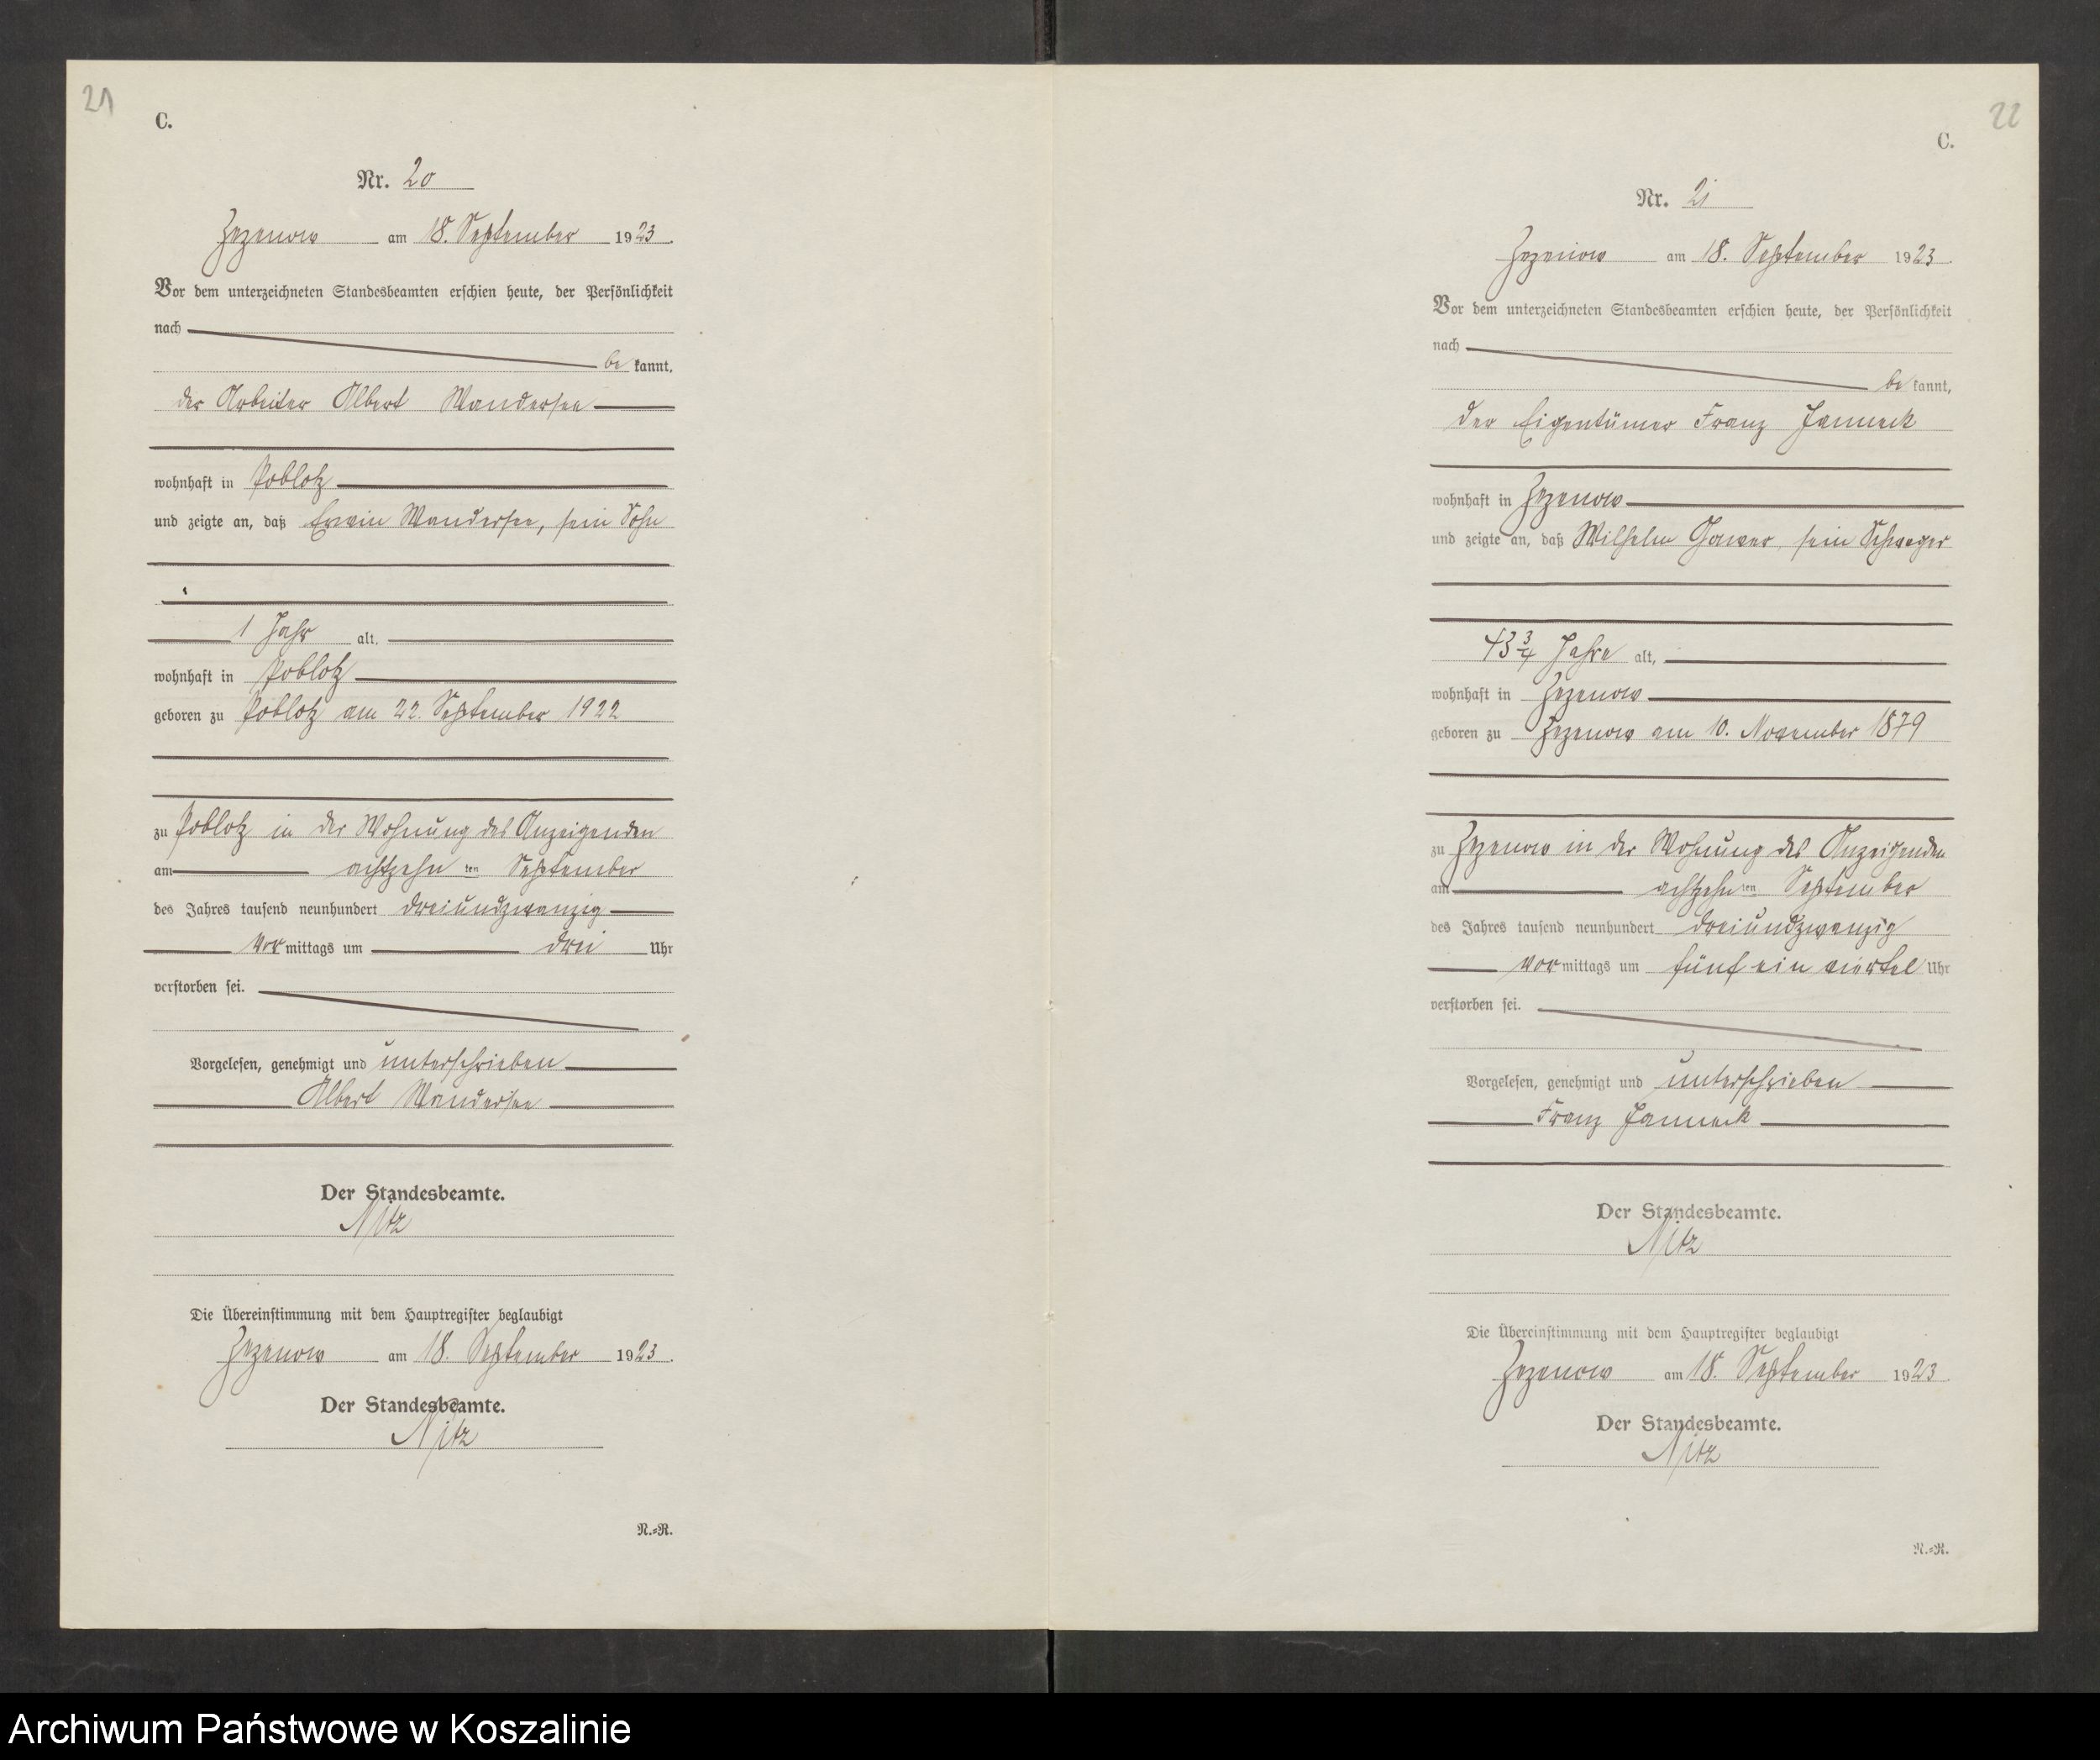 21
C.
Nr. 20
Zezenow am 18. September 1923.
Vor dem unterzeichneten Standesbeamten erschien heute, der Persönlichkeit
nach
be kannt,
der Arbeiter Albert Wandersee
wohnhaft in Poblotz
und zeigte an, daß Erwin Wandersee, sein Sohn
1 Jahr alt,
wohnhaft in Poblotz
geboren zu Poblotz am 22. September 1922
zu Poblotz in der Wohnung des Anzeigenden
am achtzehn ten September
des Jahres tausend neunhundert dreiundzwanzig
vor mittags um drei Uhr
verstorben sei.
Vorgelesen, genehmigt und unterschrieben
Albert Wandersee
Der Standesbeamte.
Nitz
Die Übereinstimmung mit dem Hauptregister beglaubigt
Zezenow am 18. September 1923.
Der Standesbeamte.
Nitz
N.=R.
22
C.
Nr. 21
Zezenow am 18. September 1923.
Vor dem unterzeichneten Standesbeamten erschien heute, der Persönlichkeit
nach
be kannt,
der Eigentümer Franz Janneck
wohnhaft in Zezenow
und zeigte an, daß Wilhelm sein Schwager
43 3/4 Jahre alt,
wohnhaft in Zezenow
geboren zu Zezenow am 10. November 1879
zu Zezenow in der Wohnung des Anzeigenden
am achtzehn ten September
des Jahres tausend neunhundert dreiundzwanzig
vor mittags um fünf ein viertel Uhr
verstorben sei.
Vorgelesen, genehmigt und unterschrieben
Franz Janneck
Der Standesbeamte.
Nitz
Die Übereinstimmung mit dem Hauptregister beglaubigt
Zezenow am 18. September 1923.
Der Standesbeamte.
Nitz
N.=R.
Archiwum Państwowe w Koszalinie